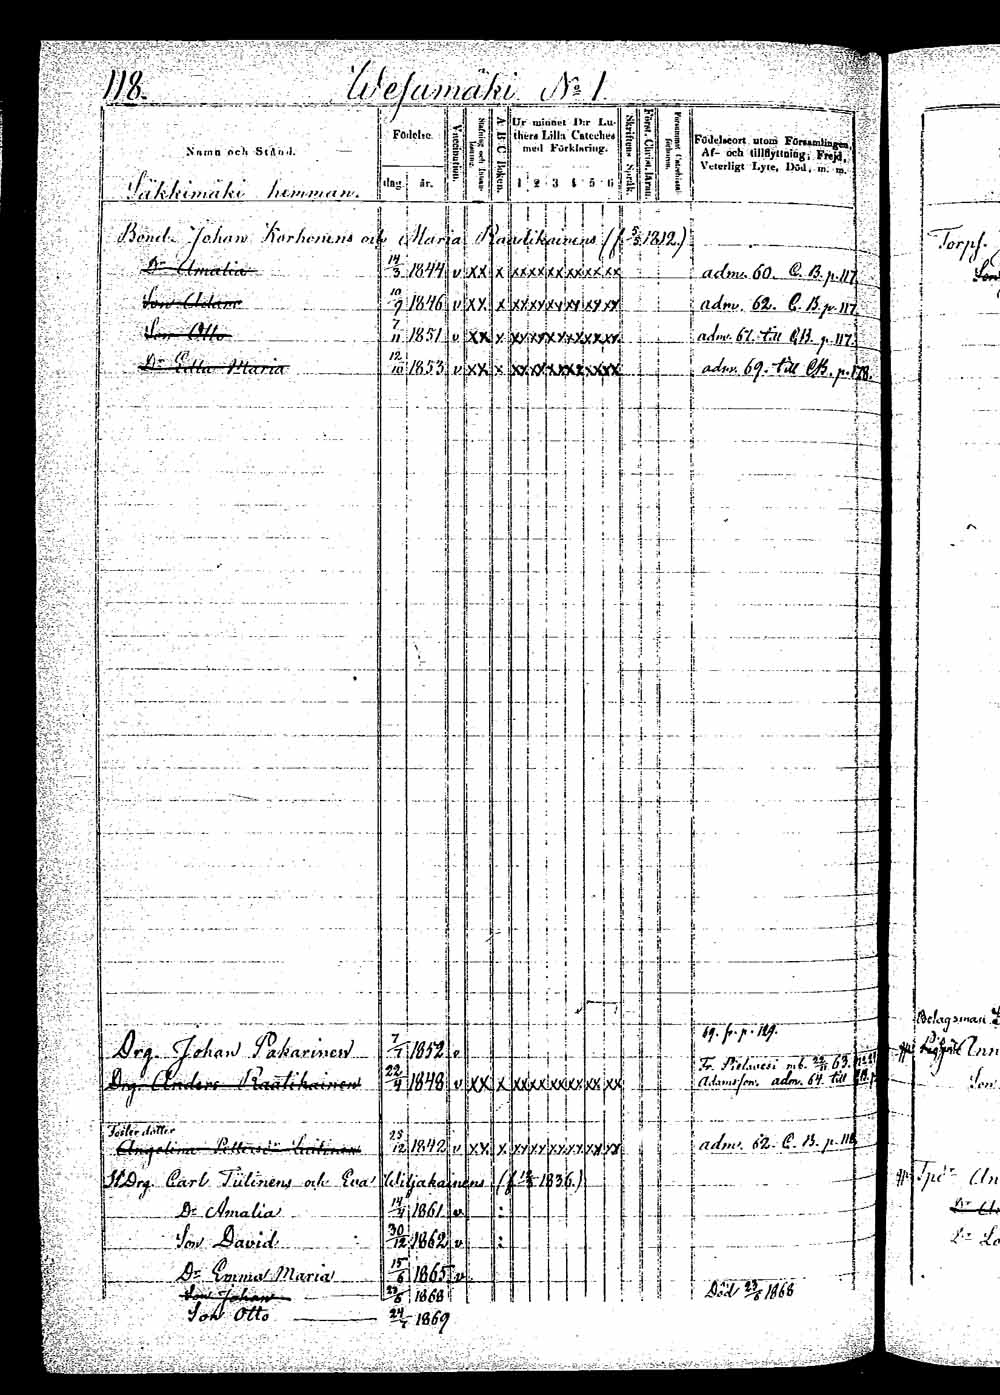 118. Wesamäki No 1.
Namn och Stånd.
Födelse.
dag. år.
Vaccination.
A B C Boken.
Ur minnet D:r Lu-
thers Lilla Cateches
med Förklaring.
1 2 3 4 5 6
Skriftens Språk.
Födelseort utom Församlingen,
Af- och tillflyttning; Frejd,
Veterligt Lyte, Död, m. m.
Säkkimäki hemman.
Bond. Johan Korhonens och Maria Raatikainens (f. 5/5 1812.)
Dr Amalia 14/3 1844 v xx x xx xx xx xx xx xx adm. 60. C. B. p. 117.
Son Adam 10/9 1846 v xx x xx xx xx xx xx xx adm. 62. C. B. p. 117.
Son Otto 7/11 1851 v xx x xx xx xx xx xx xx adm. 67. till C.B. p. 117.
Dr Edla Maria 12/10 1853 v xx x xx xx xx xx xx xx adm. 69. till C.B. p. 118.
69. fr. p. 129.
Drg. Johan Pakarinen 7/7 1852 v
Fr. Pielavesi mb. 22/11 63.
Drg. Anders Raatikainen 22/4 1848 v xx x xx xx xx xx xx xx Adamsson. adm. 64. till
Fosterdotter
Angelina Pettersdr 25/12 1842 v xx x xx xx xx xx xx xx adm. 62. C. B. p. 118
Drg. Carl Tiilinens och Eva Wiljakainens (f. 1836.)
Dr Amalia 14/4 1861 v
Son David 30/12 1862 v
Dr Emma Maria 15/6 1865 v
Son Johan 23/6 1868 Död 23/6 1868
Son Otto 24/7 1869
Torpf.
Son
Bolagsman
Ann
Son